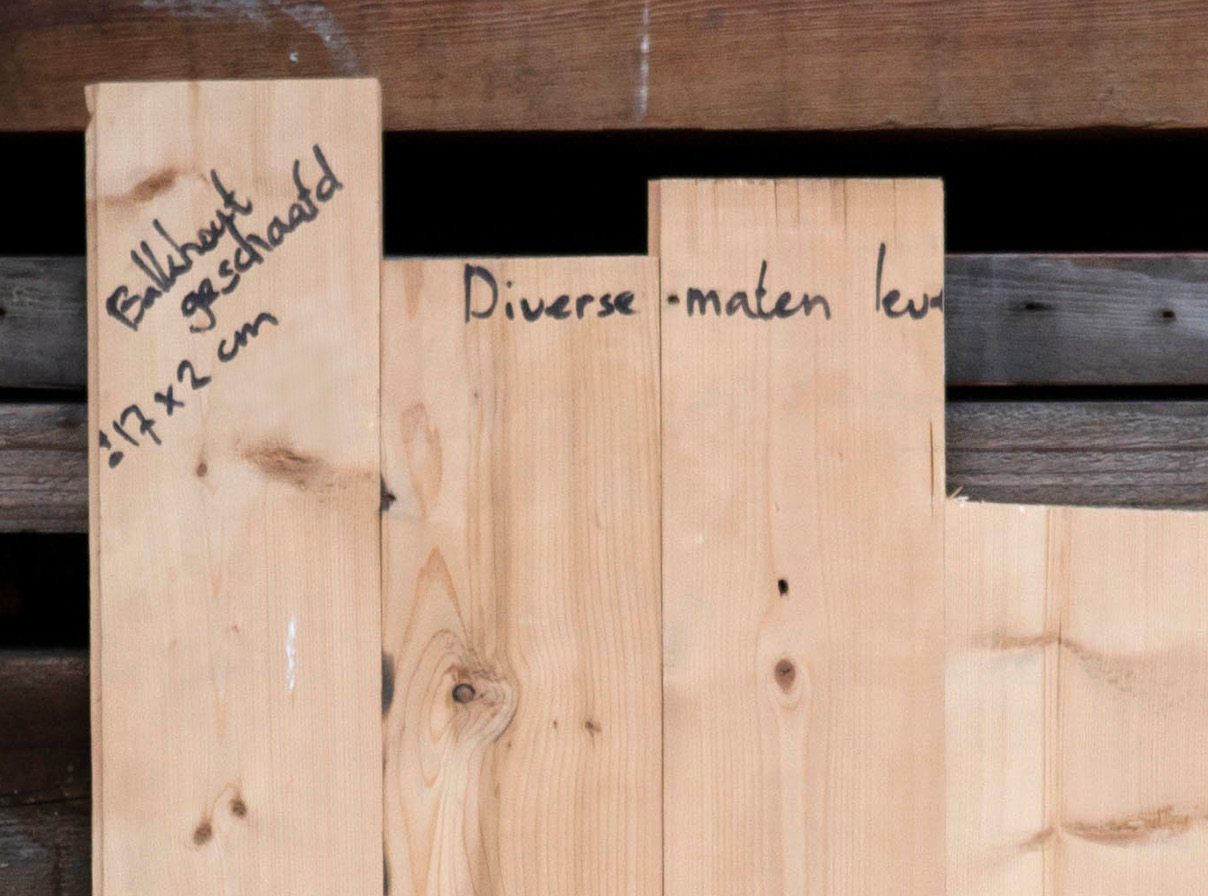 Balkhout
geschaafd
±17 x 2 cm
Diverse maten lev